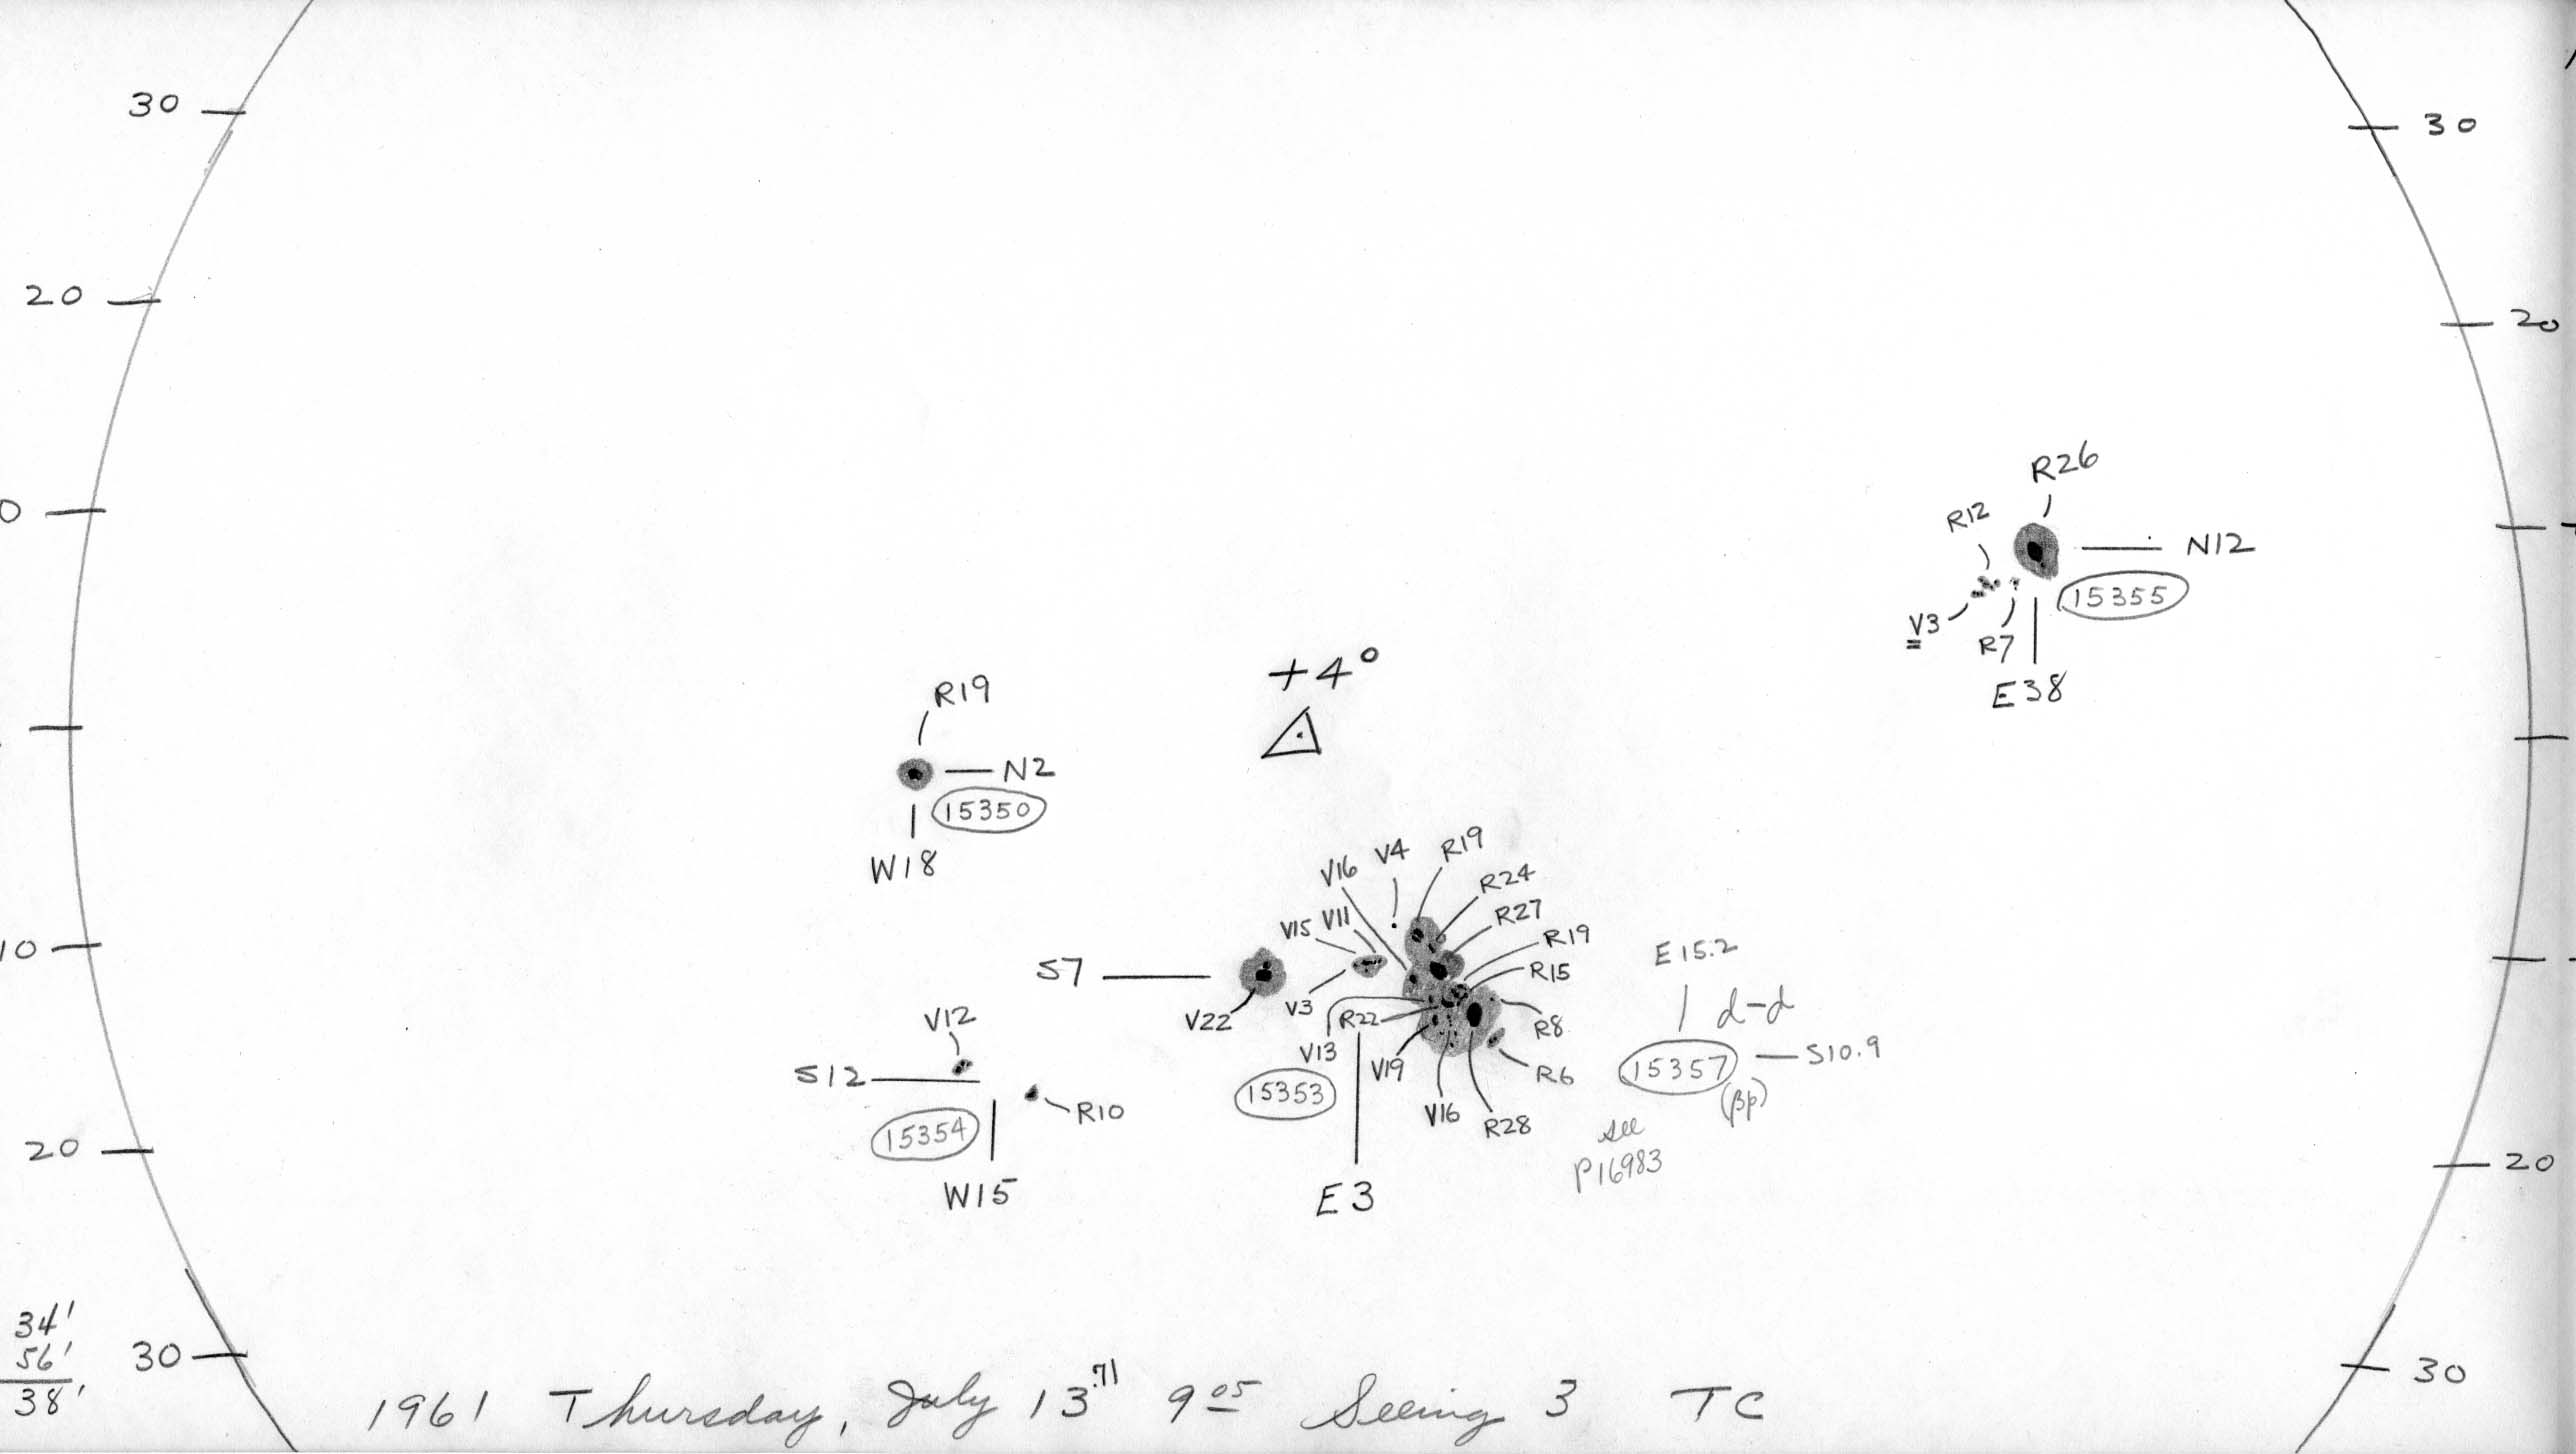 30
30
20
20
0
R26
R12
N12
15355
V3
R7
E38
+4°
R19
N2
15350
W18
V16 V4 R19
R24
R27
V15 V11
R19
R15
S7
V22
V3
R22
R8
V13
V19
R6
V16
R28
15353
E3
E15.2
d-d
15357
S10.9
(βp)
see
P16983
V12
S12
R10
15354
W15
10
20
20
34'
56'
38'
30
30
1961 Thursday, July 13.71 9 05 Seeing 3 TC